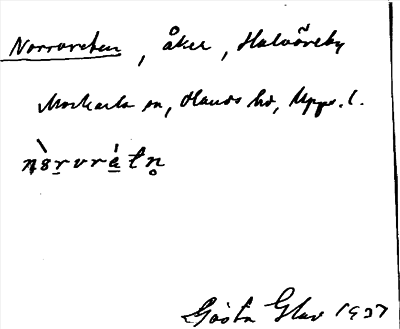 Norrvreten, åker, Halvöreby
Morkarla sn, Olands hd, Upps. l.
nòrvrátn̥
Gösta Glav 1937